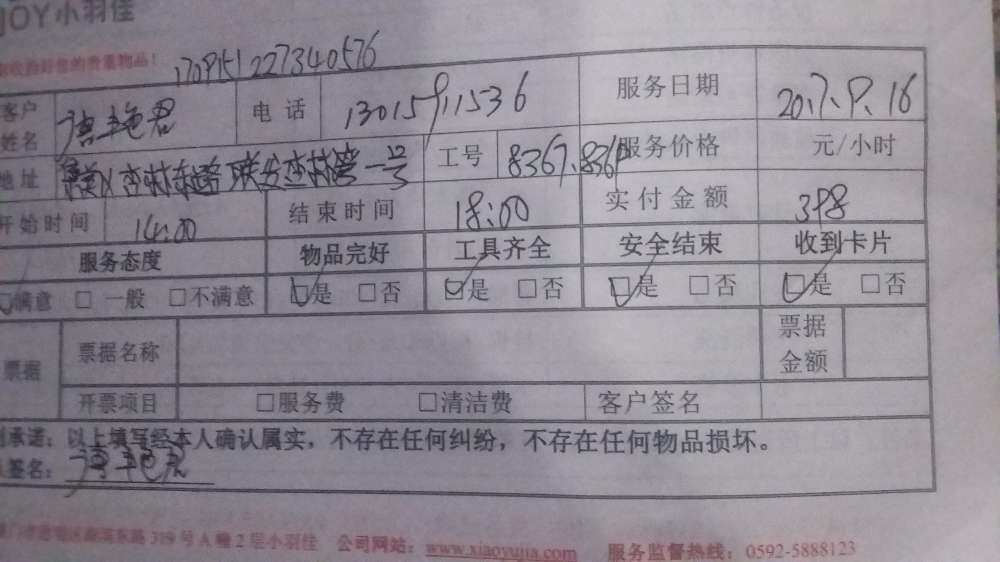 JOY小羽佳
的贵重物品！
170915122734057​6
客户姓名 电话 服务日期 2017.9.16
地址 杏林东路联发杏林湾一号 工号 8367、836 服务价格 元/小时
开始时间 14:00 结束时间 18:00 实付金额 398
服务态度 物品完好 工具齐全 安全结束 收到卡片
满意 □ 一般 □不满意 是 □否 是 □否 是 □否 是 □否
票据 票据名称 票据金额
开票项目 □服务费 □清洁费 客户签名
承诺：以上填写经本人确认属实，不存在任何纠纷，不存在任何物品损坏。
签名：
东路319号A幢2层小羽佳 公司网站：www.xiaoyujia.com 服务监督热线：0592-5888123